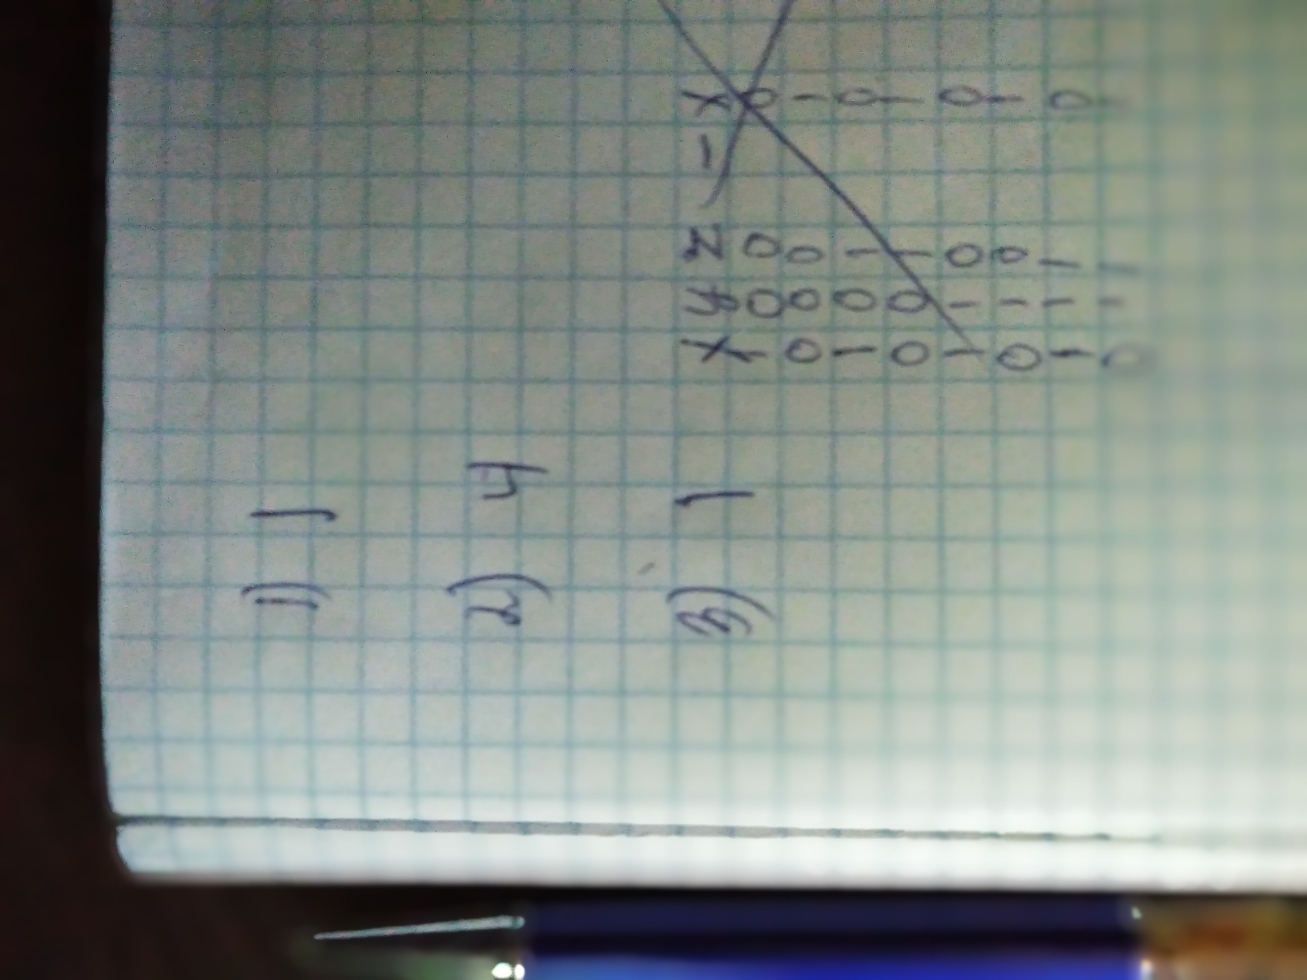 1) 1
2) 4
3) 1 x y z - x
1 0 0 0
0 0 0 1
1 0 1 0
0 0 1 1
1 1 0 0
0 1 0 1
1 1 1 0
0 1 1